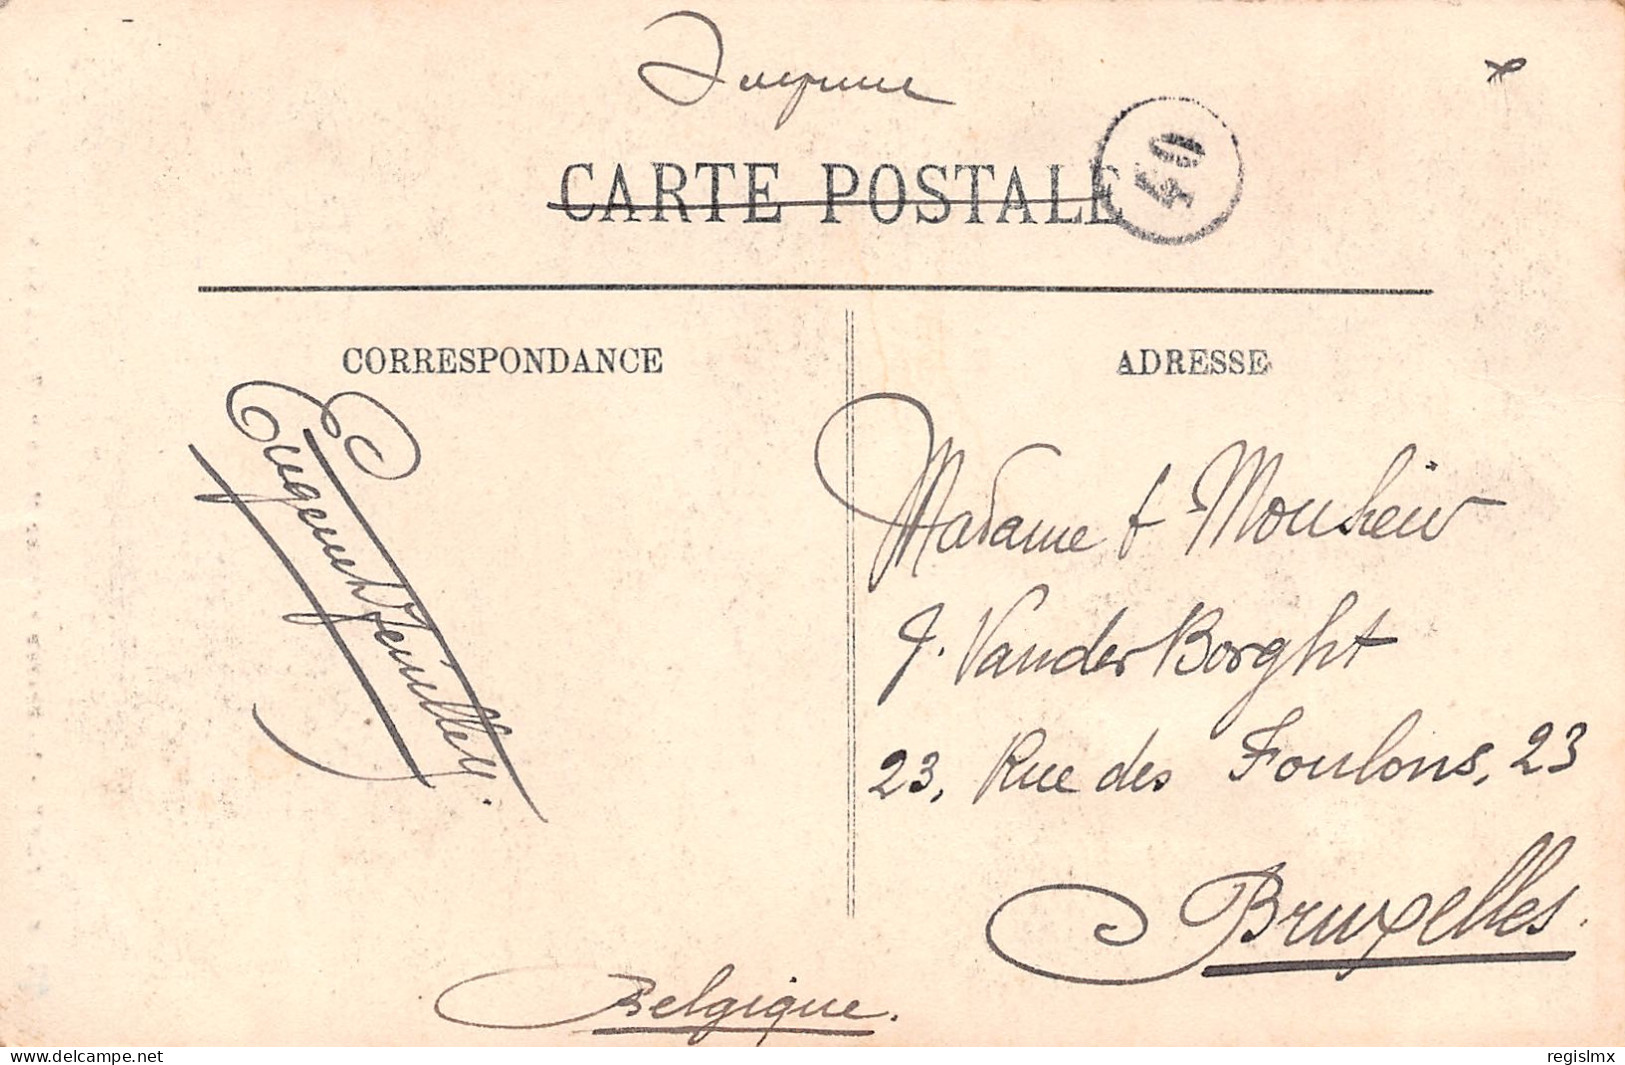 Imprimé
CARTE POSTALE
40
CORRESPONDANCE
ADRESSE
Eugène Feuilley.
Madame & Monsieur
J. Vander Borght
23, Rue des Foulons, 23
Bruxelles.
Belgique.
delcampe.net
regislmx